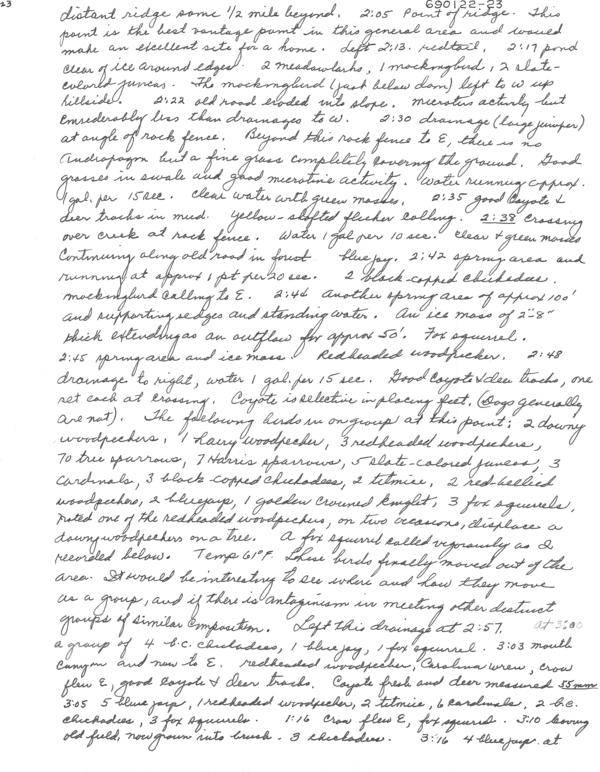 23
690122-23
distant ridge some 1/2 mile beyond. 2:05 Point of ridge. This
point is the best vantage point in this general area and would
make an excellent site for a home. Left 2:13. redtail. 2:17 pond
clear of ice around edges. 2 meadowlarks, 1 mockingbird, 2 slate-
colored juncos. The mockingbird (just below dam) left to W up
hillside. 2:22 old road eroded into slope. microtus activity but
considerably less than drainages to W. 2:30 drainage (large juniper)
at angle of rock fence. Beyond this rock fence to E, there is no
Andropogon but a fine grass completely covering the ground. Good
grasses in swale and good microtine activity. Water running approx.
1 gal. per 15 sec. Clear water with green mosses. 2:35 good Coyote &
deer tracks in mud. Yellow-shafted flicker calling. 2:38 Crossing
over creek at rock fence. Water 1 gal per 10 sec. Clear & green mosses
Continuing along old road in forest bluejay. 2:42 spring area and
running at approx 1 pt per 20 sec. 2 black-capped chickadees.
mockingbird calling to E. 2:44 another spring area of approx 100'
and supporting sedges and standing water. An ice mass of 2"-8"
thick extending as an outflow for approx 50'. Fox squirrel.
2:45 spring area and ice mass. Redheaded woodpecker. 2:48
drainage to right, water 1 gal. per 15 sec. Good Coyote & deer tracks, one
set each at crossing. Coyote is selective in placing feet. (Dogs generally
are not). The following birds in on group at this point: 2 downy
woodpeckers, 1 hairy woodpecker, 3 redheaded woodpeckers,
70 tree sparrows, 7 Harris sparrows, 5 slate-colored juncos, 3
Cardinals, 3 black-capped chickadees, 2 titmice, 2 red-bellied
woodpeckers, 2 bluejays, 1 golden crowned kinglet, 3 fox squirrels.
noted one of the redheaded woodpeckers, on two occasions, displace a
downy woodpeckers on a tree. A fox squirrel called vigorously as I
recorded below. Temp 61°F. These birds finally moved out of the
area. It would be interesting to see where and how they move
as a group, and if there is antaginism in meeting other distinct
groups of similar composition. Left this drainage at 2:57. at 3:00
a group of 4 b.c. chickadees, 1 bluejay, 1 fox squirrel. 3:03 mouth
Canyon and now to E. redheaded woodpecker, Carolina wren, crow
flew E, good Coyote & deer tracks. Coyote fresh and deer measured 55mm
3:05 5 bluejays, 1 redheaded woodpecker, 2 titmice, 6 cardinals, 2 b.c.
chickadees, 3 fox squirrels. 1:16 Crow flew E, fox squirrel. 3:10 leaving
old field, now grown into brush. 3 chickadees. 3:16 4 bluejays at